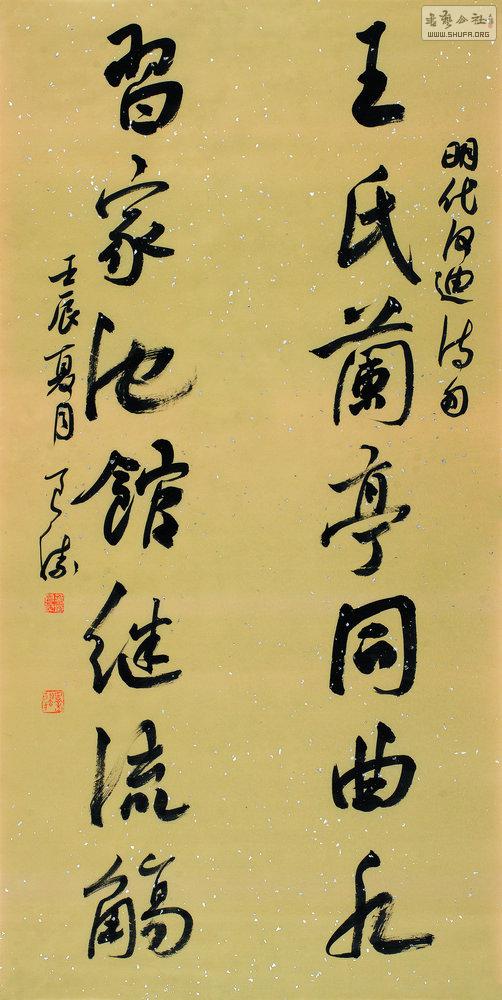 書藝公社
WWW.SHUFA.ORG
明代何迪诗句
王氏蘭亭同曲水
習家池館继流觴
壬辰夏月